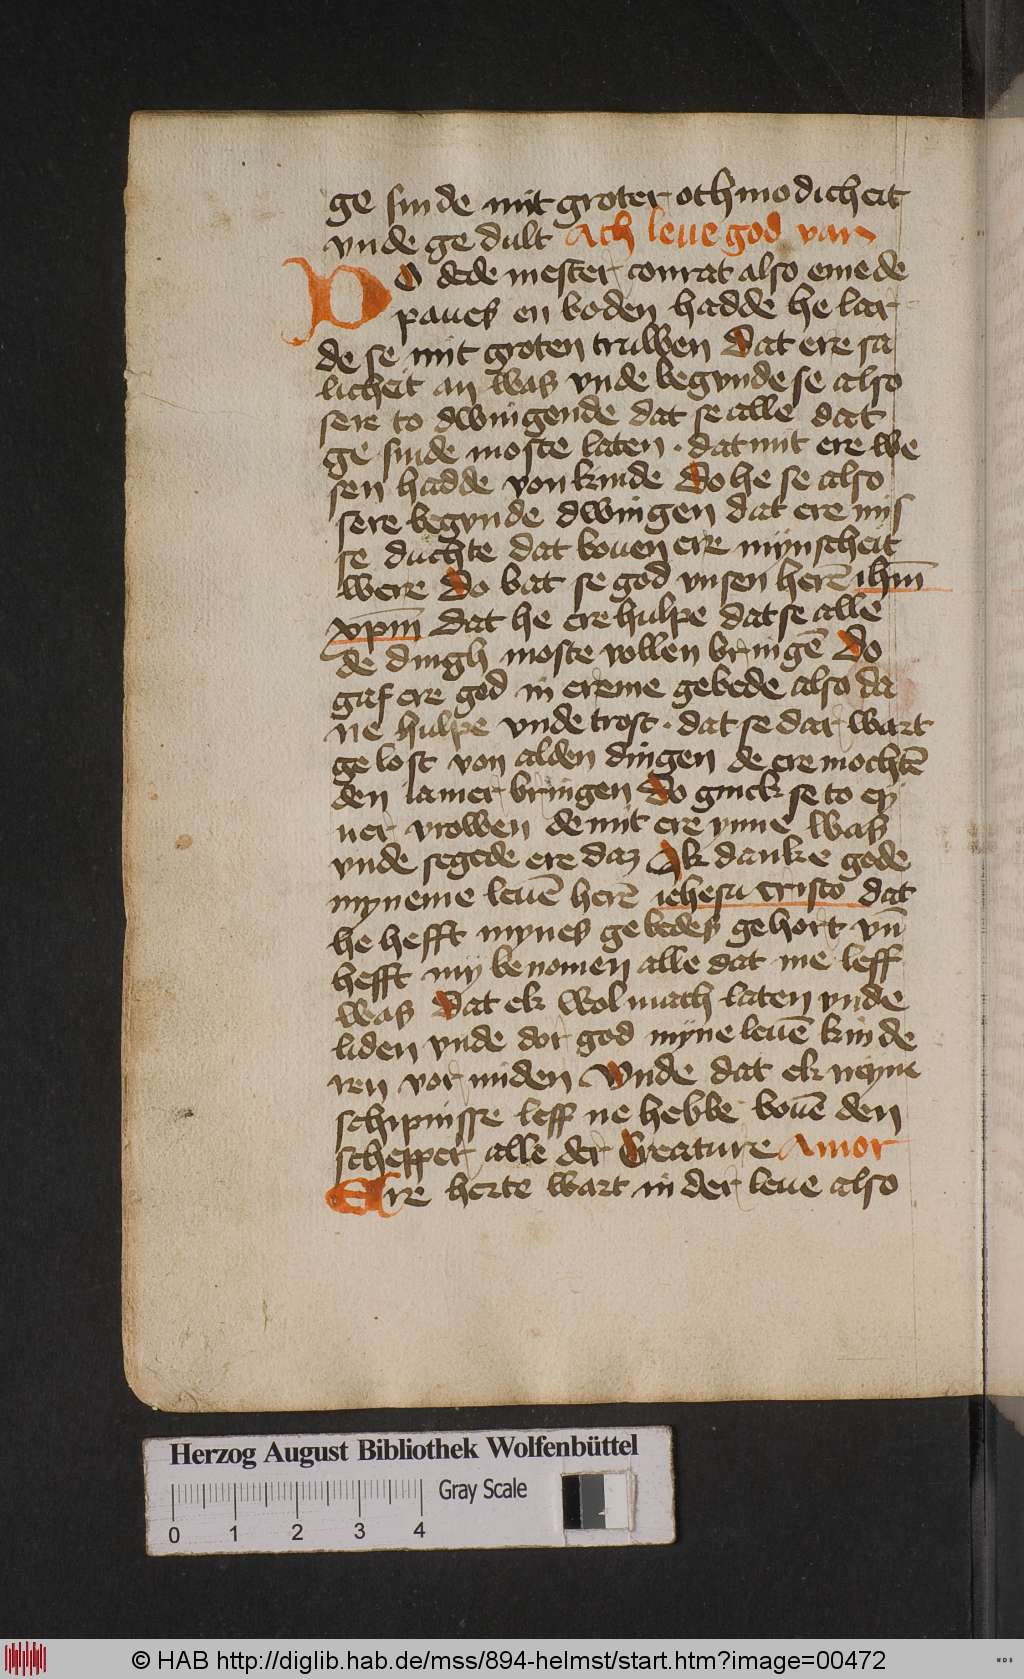 ge sinde mit groter othmodicheit
vnde ge dult Ach leue god van
Do dede mester conrat also eme de
paues en boden hadde he lar
de se mit groten truwen Dat ere sa
licheit an was vnde begynde se also
sere to dwingende dat se alle dat
ge sinde moste laten · dat mit ere we
sen hadde von kinde Do he se also
sere begynde dwingen dat ere mis
se duchte dat bouen ere mynscheit
were Do bat se god vnsen herē ihm̄
xpm̄ dat he ere hulpe dat se alle
de dingh moste vollen bringē Do
gaf ere god in ereme gebede also da
ne hulpe vnde trost · dat se dar wart
ge lost von alden dingen de ere mochtē
den iamer bringen Do ginck se to ey
ner vrowen de mit ere ynne was
vnde segede ere daz Ik danke gode
myneme leuē herē iehesu cristo dat
he hefft mynes gebedes gehort vn̄
hefft my benomen alle dat me leff
was Dat ek wol mach laten vnde
liden vnde dor god myne leuē kinde
ren vor miden Vnde dat ek neyne
schipnisse leff ne hebbe bouē den
schepper alle der Creature Amor
Ere herte wart in der leue also
Herzog August Bibliothek Wolfenbüttel
Gray Scale
0 1 2 3 4
© HAB http://diglib.hab.de/mss/894-helmst/start.htm?image=00472